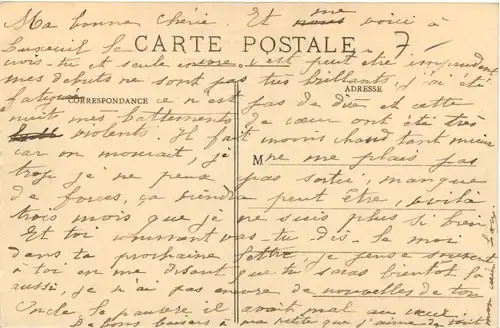 Ma bonne chérie. Et me voici à
Luxeuil le
CARTE POSTALE
7
crois-tu et seule c'est peut être imprudent
mes débuts ne sont pas très brillants, j'ai été
ADRESSE
fatiguée ce n'est pas de dire et cette
CORRESPONDANCE
nuit mes battements de cœur ont été très
violents. Il fait moins chaud tant mieux
car on mourait, je ne me plais pas
M
trop je ne peux pas sortir, manque
de forces, ça viendra peut être, voilà
trois mois que je ne suis plus si bien
Et toi comment vas-tu, dis-le moi
dans ta prochaine lettre, je pense souvent
à toi en me disant que tu seras bientôt là
aussi, je n'ai pas encore de nouvelles de ton
Oncle, le pauvre il avait mal au cœur.
De bons baisers à ma petite que j'aime de tout
mon cœur